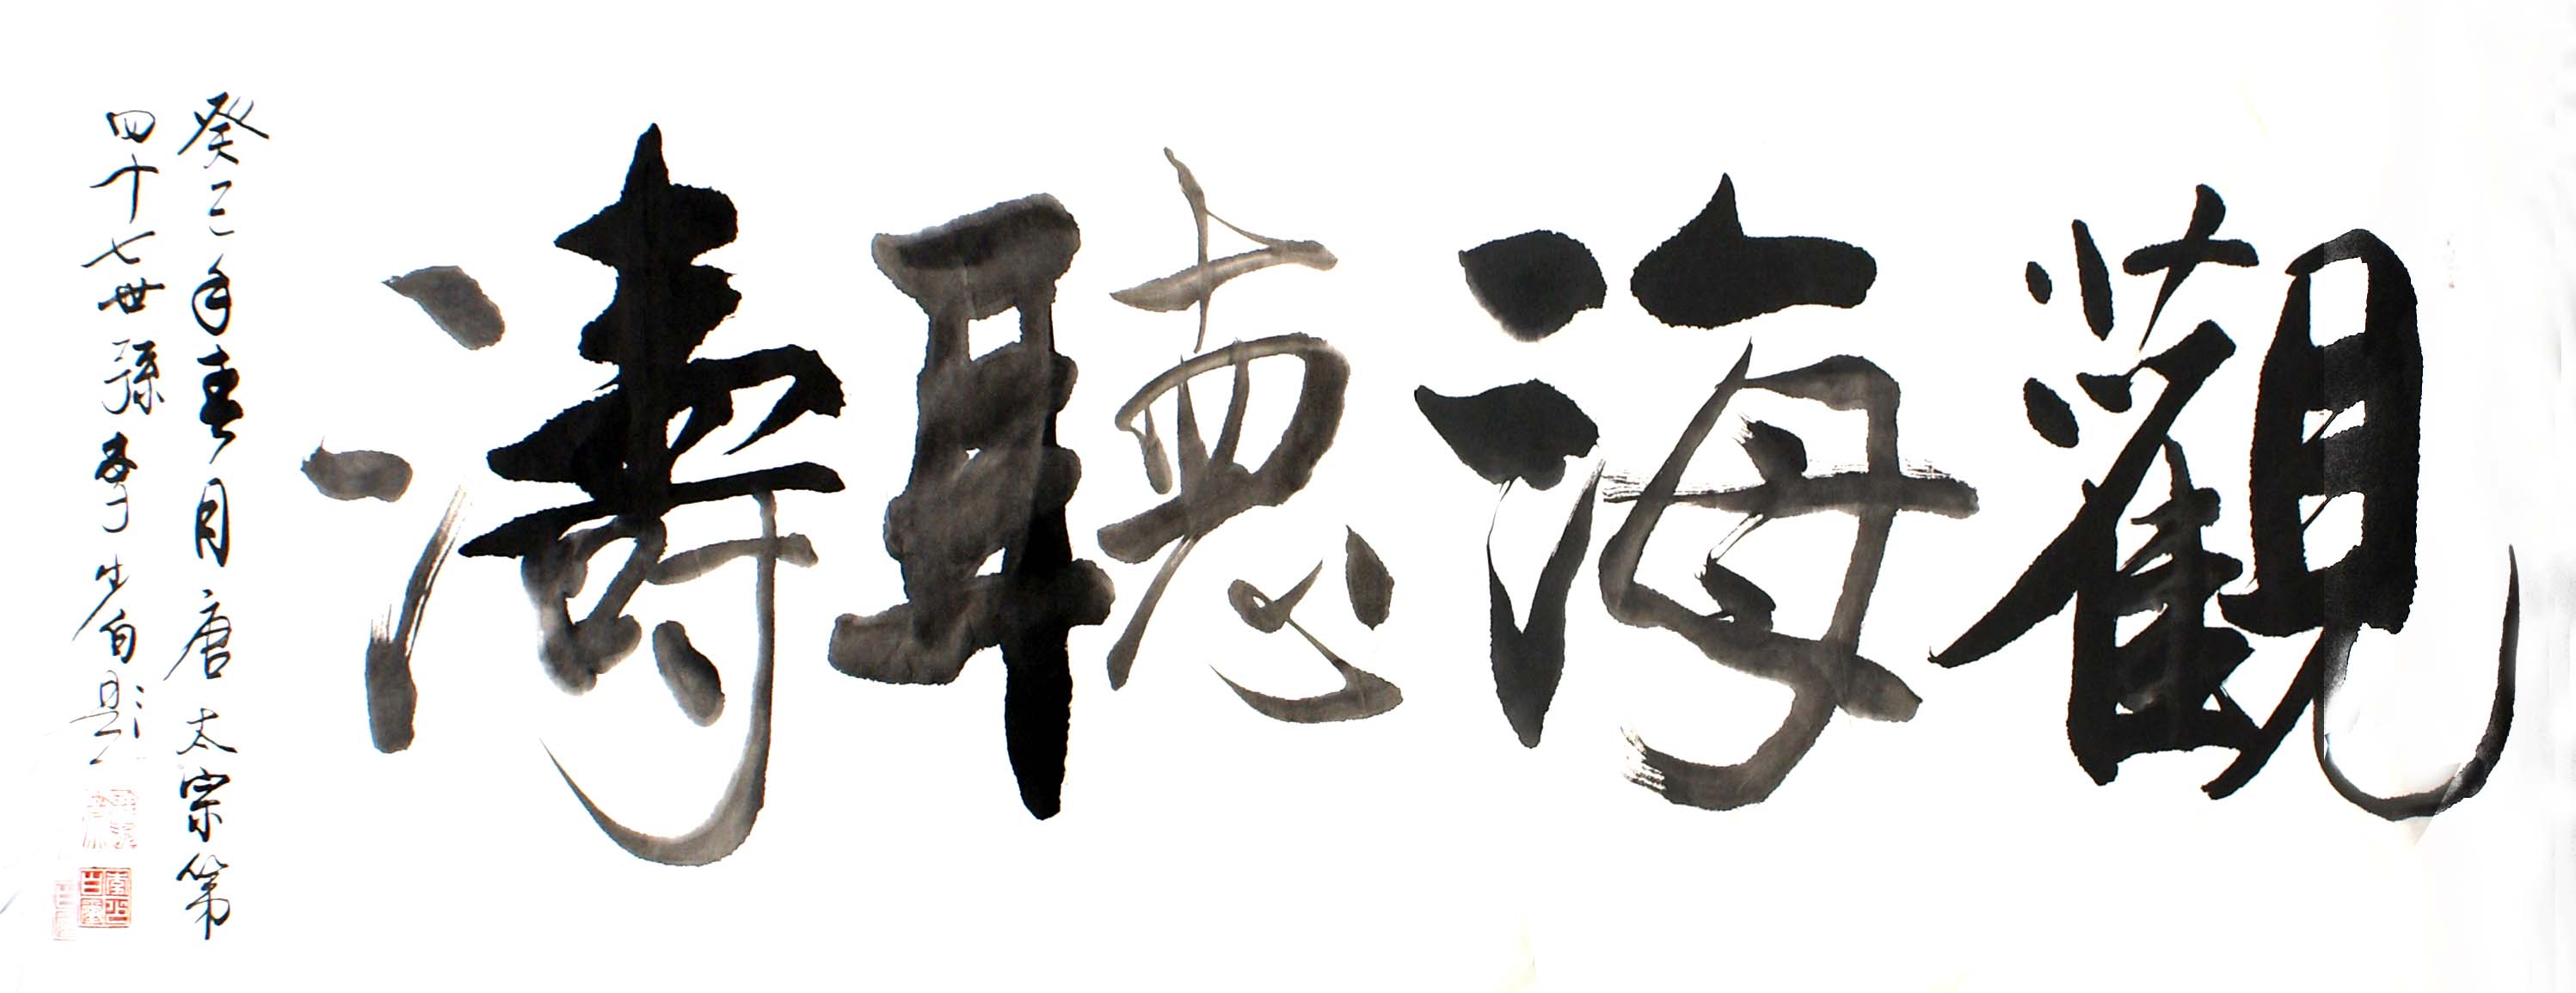 觀海聽濤
癸巳年春月唐太宗第
四十七世孫李生白題